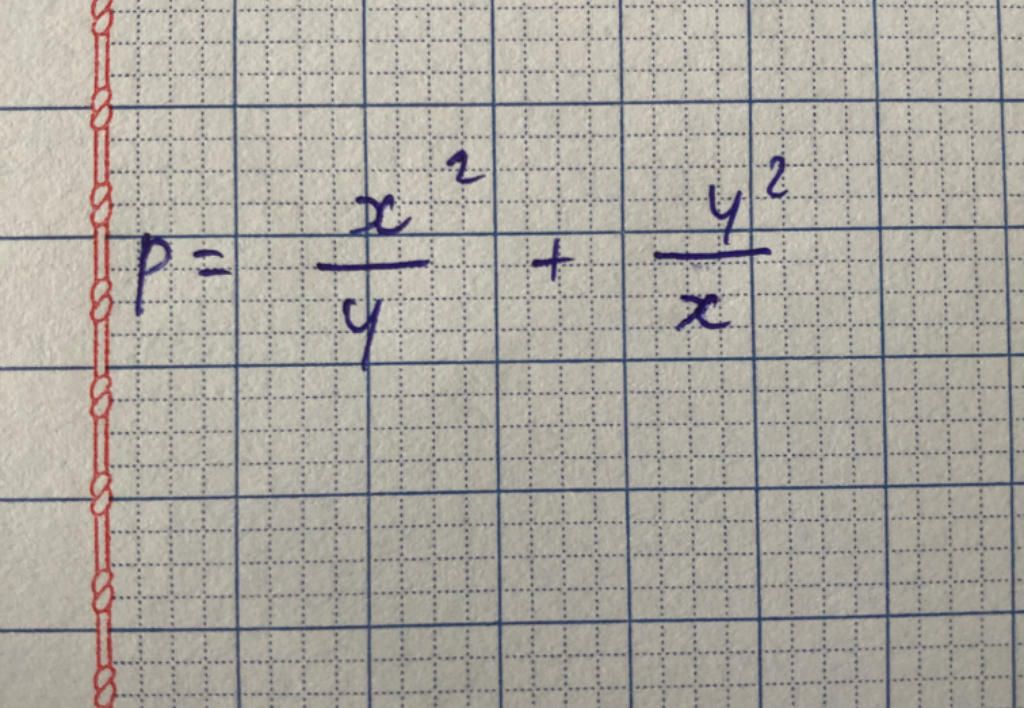 P = x²/y + y²/x